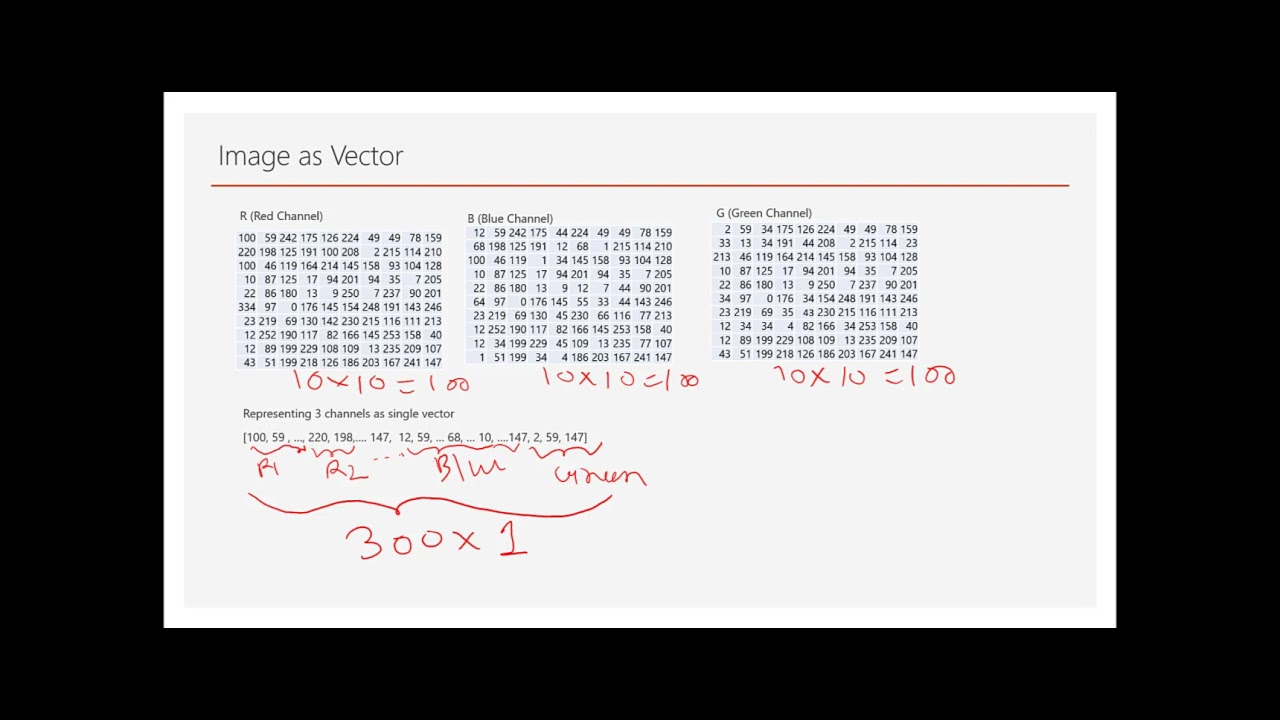 Image as Vector
R (Red Channel)
100 59 242 175 126 224 49 49 78 159
220 198 125 191 100 208 2 215 114 210
100 46 119 164 214 145 158 93 104 128
10 87 125 17 94 201 94 35 7 205
22 86 180 13 9 250 7 237 90 201
334 97 0 176 145 154 248 191 143 246
23 219 69 130 142 230 215 116 111 213
12 252 190 117 82 166 145 253 158 40
12 89 199 229 108 109 13 235 209 107
43 51 199 218 126 186 203 167 241 147
10 x 10 = 100
B (Blue Channel)
12 59 242 175 44 224 49 49 78 159
68 198 125 191 12 68 1 215 114 210
100 46 119 1 34 145 158 93 104 128
10 87 125 17 94 201 94 35 7 205
22 86 180 13 9 12 7 44 90 201
64 97 0 176 145 55 33 44 143 246
23 219 69 130 45 230 66 116 77 213
12 252 190 117 82 166 145 253 158 40
12 34 199 229 45 109 13 235 77 107
1 51 199 34 4 186 203 167 241 147
10 x 10 = 100
G (Green Channel)
2 59 34 175 126 224 49 49 78 159
33 13 34 191 44 208 2 215 114 23
213 46 119 164 214 145 158 93 104 128
10 87 125 17 94 201 94 35 7 205
22 86 180 13 9 250 7 237 90 201
34 97 0 176 34 154 248 191 143 246
23 219 69 35 43 230 215 116 111 213
12 34 34 4 82 166 34 253 158 40
12 89 199 229 108 109 13 235 209 107
43 51 199 218 126 186 203 167 241 147
10 x 10 = 100
Representing 3 channels as single vector
[100, 59 , ..., 220, 198,.... 147, 12, 59, ... 68, ... 10, ....147, 2, 59, 147]
R1 R2 ... Blue Green
300 x 1